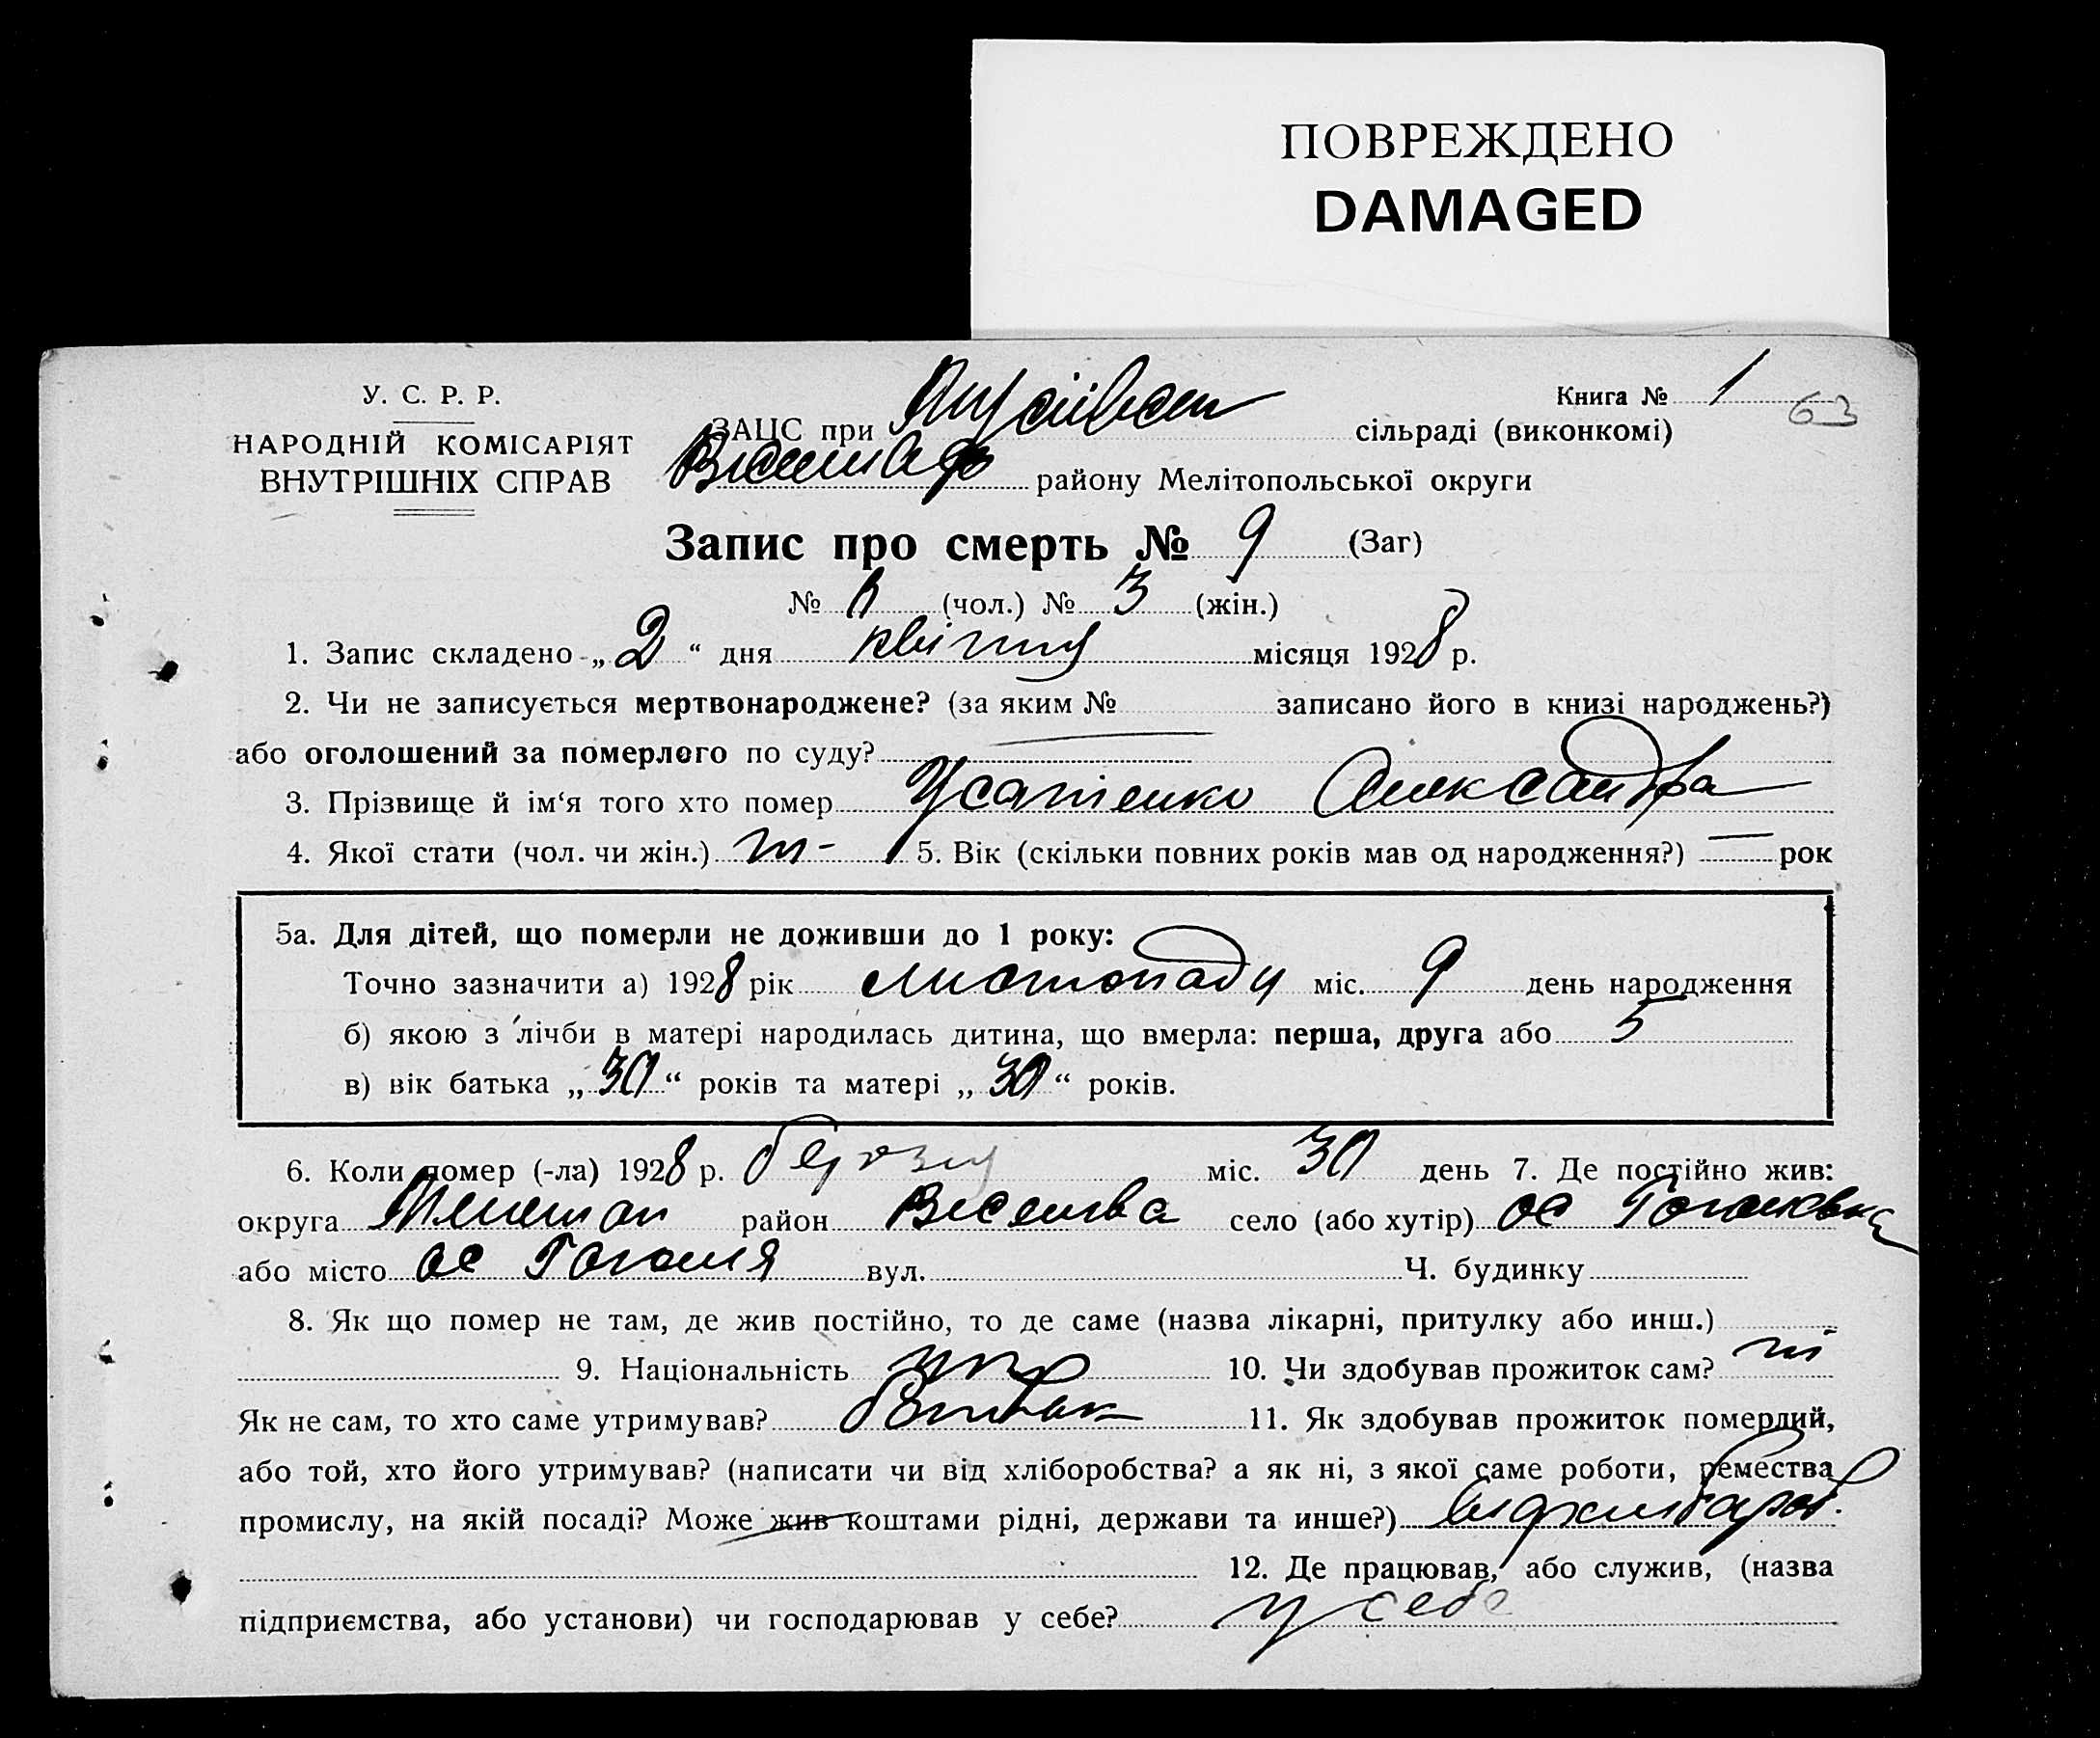 ПОВРЕЖДЕНО
DAMAGED
У. С. Р. Р.
НАРОДНІЙ КОМІСАРІЯТ
ВНУТРІШНІХ СПРАВ
Книга № 1 63
ЗАЦС при сільраді (виконкомі)
району Мелітопольської округи
Запис про смерть № 9 (Заг)
№ (чол.) № 3 (жін.)
1. Запис складено „2“ дня квітня місяця 1928 р.
2. Чи не записується мертвонароджене? (за яким № записано його в книзі народжень?)
або оголошений за померлого по суду?
3. Прізвище й ім‘я того хто помер Усатенко Олександра
4. Якої стати (чол. чи жін.) 5. Вік (скільки повних років мав од народження?) — рок
5а. Для дітей, що померли не доживши до 1 року:
Точно зазначити а) 1928 рік листопаду міс. 9 день народження
б) якою з лічби в матері народилась дитина, що вмерла: перша, друга або 5
в) вік батька „30“ років та матері „30“ років.
6. Коли помер (-ла) 1928 р. березня міс. 30 день 7. Де постійно жив:
округа Мелітоп район Веселівка село (або хутір) ос
або місто ос Гоголя вул. Ч. будинку
8. Як що помер не там, де жив постійно, то де саме (назва лікарні, притулку або инш.)
9. Національність укр 10. Чи здобував прожиток сам? ні
Як не сам, то хто саме утримував? батько 11. Як здобував прожиток померлий,
або той, хто його утримував? (написати чи від хліборобства? а як ні, з якої саме роботи, ремества
промислу, на якій посаді? Може жив коштами рідні, держави та инше?)
12. Де працював, або служив, (назва
підприємства, або установи) чи господарював у себе? у себе